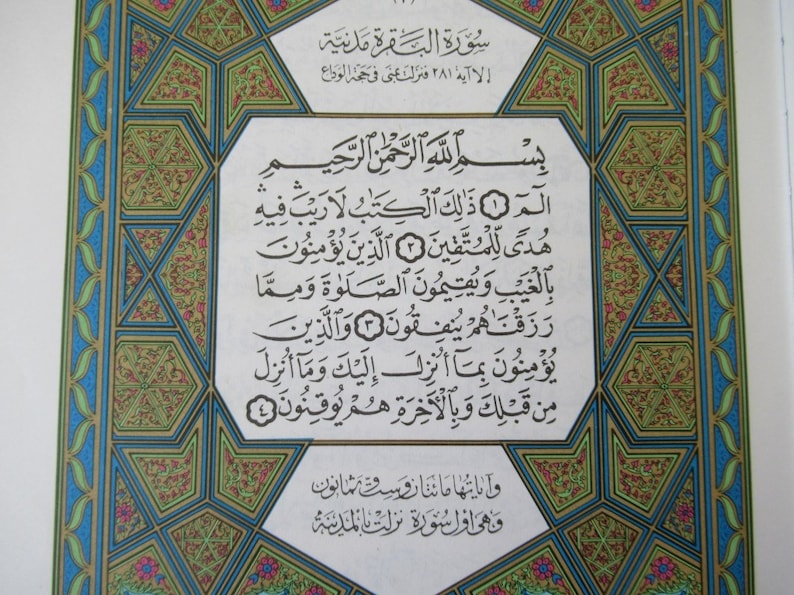 سُورَةُ البَقَرَةِ مَدَنِيَّة
إلا آية ٢٨١ فنزلت بمنى في حجة الوداع
بِسْمِ ٱللَّهِ ٱلرَّحْمَٰنِ ٱلرَّحِيمِ
الٓمٓ ۝١ ذَٰلِكَ ٱلْكِتَٰبُ لَا رَيْبَۛ فِيهِۛ
هُدًى لِّلْمُتَّقِينَ ۝٢ ٱلَّذِينَ يُؤْمِنُونَ
بِٱلْغَيْبِ وَيُقِيمُونَ ٱلصَّلَوٰةَ وَمِمَّا
رَزَقْنَٰهُمْ يُنفِقُونَ ۝٣ وَٱلَّذِينَ
يُؤْمِنُونَ بِمَآ أُنزِلَ إِلَيْكَ وَمَآ أُنزِلَ
مِن قَبْلِكَ وَبِٱلْأَخِرَةِ هُمْ يُوقِنُونَ ۝٤
وآياتها مائتان وست وثمانون
وهي أول سورة نزلت بالمدينة